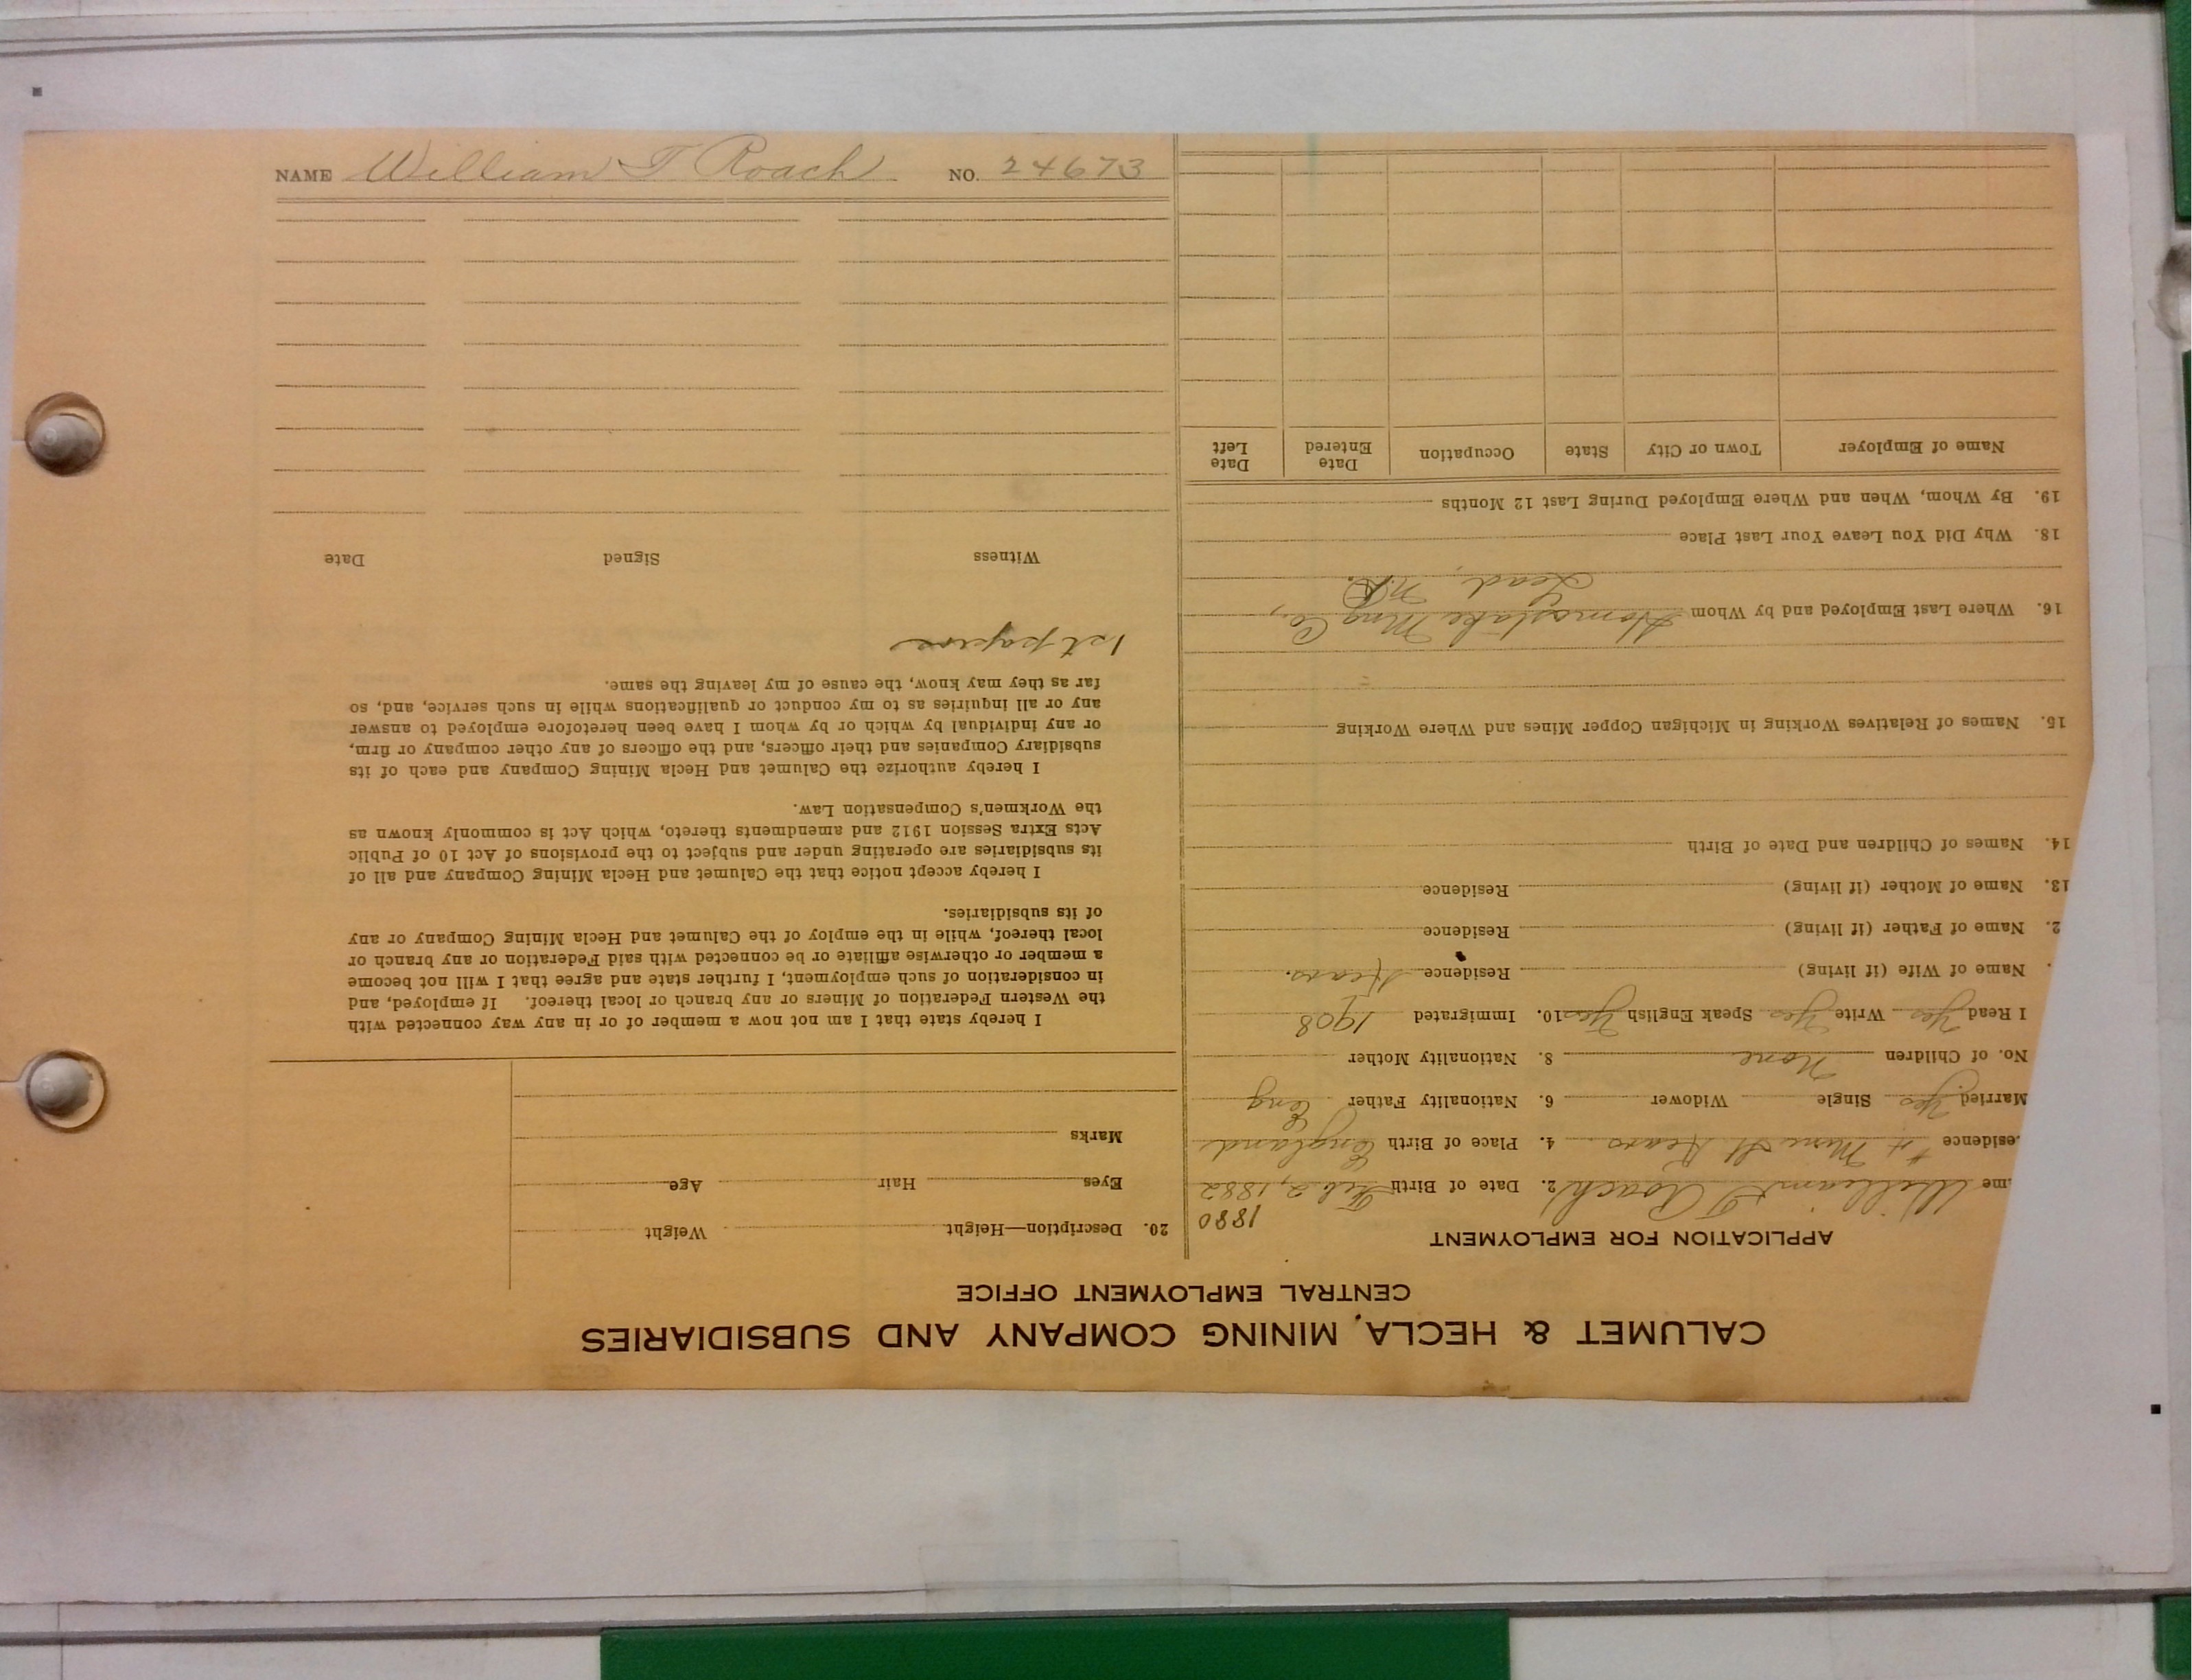 NAME William T Roach NO. 24673
CALUMET & HECLA MINING COMPANY AND SUBSIDIARIES
CENTRAL EMPLOYMENT OFFICE
APPLICATION FOR EMPLOYMENT
1880
me William T Roach 2. Date of Birth Feb 2, 1882
esidence # Mine St Kears 4. Place of Birth England
Married Yes Single Widower 6. Nationality Father Eng
No. of Children None 8. Nationality Mother
I Read Yes Write Yes Speak English Yes 10. Immigrated 1908
. Name of Wife (if living) Residence Kears.
2. Name of Father (if living) Residence
13. Name of Mother (if living) Residence
14. Names of Children and Date of Birth
15. Names of Relatives Working in Michigan Copper Mines and Where Working
16. Where Last Employed and by Whom Homestake Mng Co.,
Lead,
18. Why Did You Leave Your Last Place
19. By Whom, When and Where Employed During Last 12 Months
Name of Employer Town or City State Occupation Date Entered Date Left
20. Description—Height Weight
Eyes Hair Age
Marks
I hereby state that I am not now a member of or in any way connected with
the Western Federation of Miners or any branch or local thereof. If employed, and
in consideration of such employment, I further state and agree that I will not become
a member or otherwise affiliate or be connected with said Federation or any branch or
local thereof, while in the employ of the Calumet and Hecla Mining Company or any
of its subsidiaries.
I hereby accept notice that the Calumet and Hecla Mining Company and all of
its subsidiaries are operating under and subject to the provisions of Act 10 of Public
Acts Extra Session 1912 and amendments thereto, which Act is commonly known as
the Workmen's Compensation Law.
I hereby authorize the Calumet and Hecla Mining Company and each of its
subsidiary Companies and their officers, and the officers of any other company or firm,
or any individual by which or by whom I have been heretofore employed to answer
any or all inquiries as to my conduct or qualifications while in such service, and, so
far as they may know, the cause of my leaving the same.
1st papers
Witness Signed Date